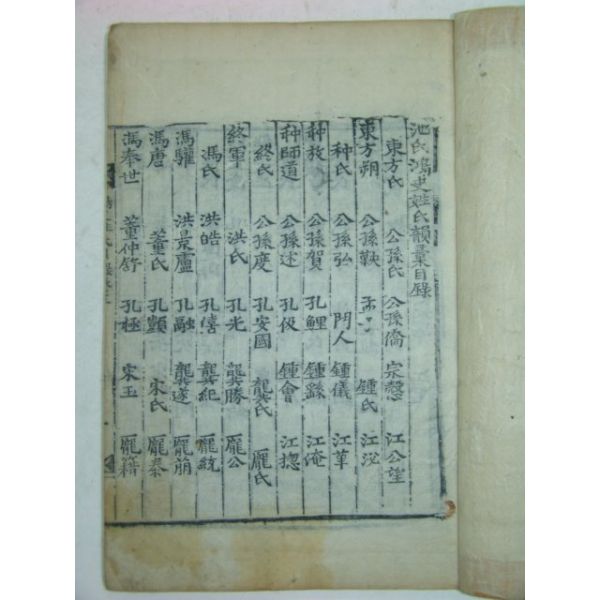 池氏鴻史姓氏韻彙目錄
東方氏 公孫氏 公孫僑 宗慤 江公望
東方朔 公孫鞅 鍾氏 江泌
种氏 公孫弘 門人 鍾儀 江革
种放 公孫賀 孔鯉 鍾繇 江淹
种師道 公孫述 孔伋 鍾會 江揔
終氏 公孫度 孔安國 龔氏 龐氏
終軍 洪氏 孔光 龔勝 龐公
馮氏 洪皓 孔僖 龔紀 龐統
馮驩 洪景盧 孔融 龔遂 龐萌
馮唐 董氏 孔顗 宋氏 龐秦
馮奉世 董仲舒 孔極 宋玉 龐籍